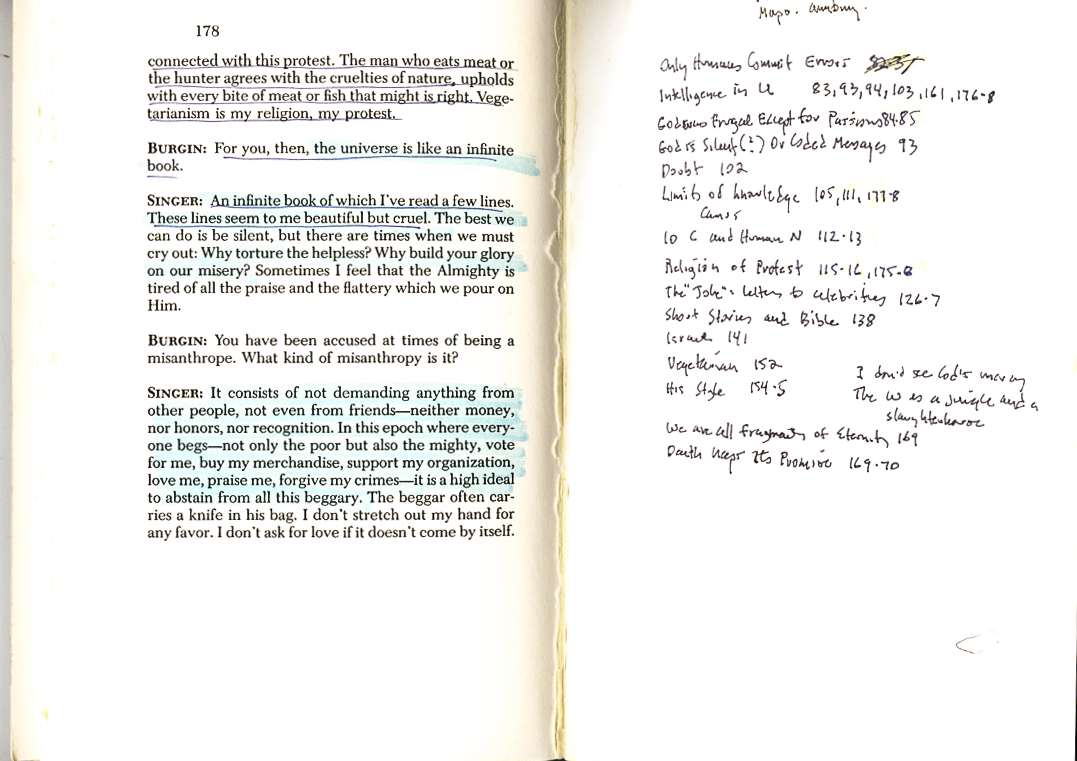 178
connected with this protest. The man who eats meat or
the hunter agrees with the cruelties of nature, upholds
with every bite of meat or fish that might is right. Vege-
tarianism is my religion, my protest.
BURGIN: For you, then, the universe is like an infinite
book.
SINGER: An infinite book of which I've read a few lines.
These lines seem to me beautiful but cruel. The best we
can do is be silent, but there are times when we must
cry out: Why torture the helpless? Why build your glory
on our misery? Sometimes I feel that the Almighty is
tired of all the praise and the flattery which we pour on
Him.
BURGIN: You have been accused at times of being a
misanthrope. What kind of misanthropy is it?
SINGER: It consists of not demanding anything from
other people, not even from friends—neither money,
nor honors, nor recognition. In this epoch where every-
one begs—not only the poor but also the mighty, vote
for me, buy my merchandise, support my organization,
love me, praise me, forgive my crimes—it is a high ideal
to abstain from all this beggary. The beggar often car-
ries a knife in his bag. I don't stretch out my hand for
any favor. I don't ask for love if it doesn't come by itself.
Only Humans Commit Errors
Intelligence in U 83, 93, 94, 103, 161, 176-8
God Frugal Except for Passions 84-85
God is Silent (?) Or Coded Messages 93
Doubt 102
Limits of knowledge 105, 111, 177-8
10 C and Human N 112-13
Religion of Protest 115-16, 175-8
The "Joke" letters to celebrities 126-7
Short Stories and Bible 138
Israel 141
Vegetarian 152
His Style 154-5
I don't see God's mercy
The W is a jungle and a
slaughterhouse
We are all fragments of Eternity 169
Death keeps Its Promise 169-70